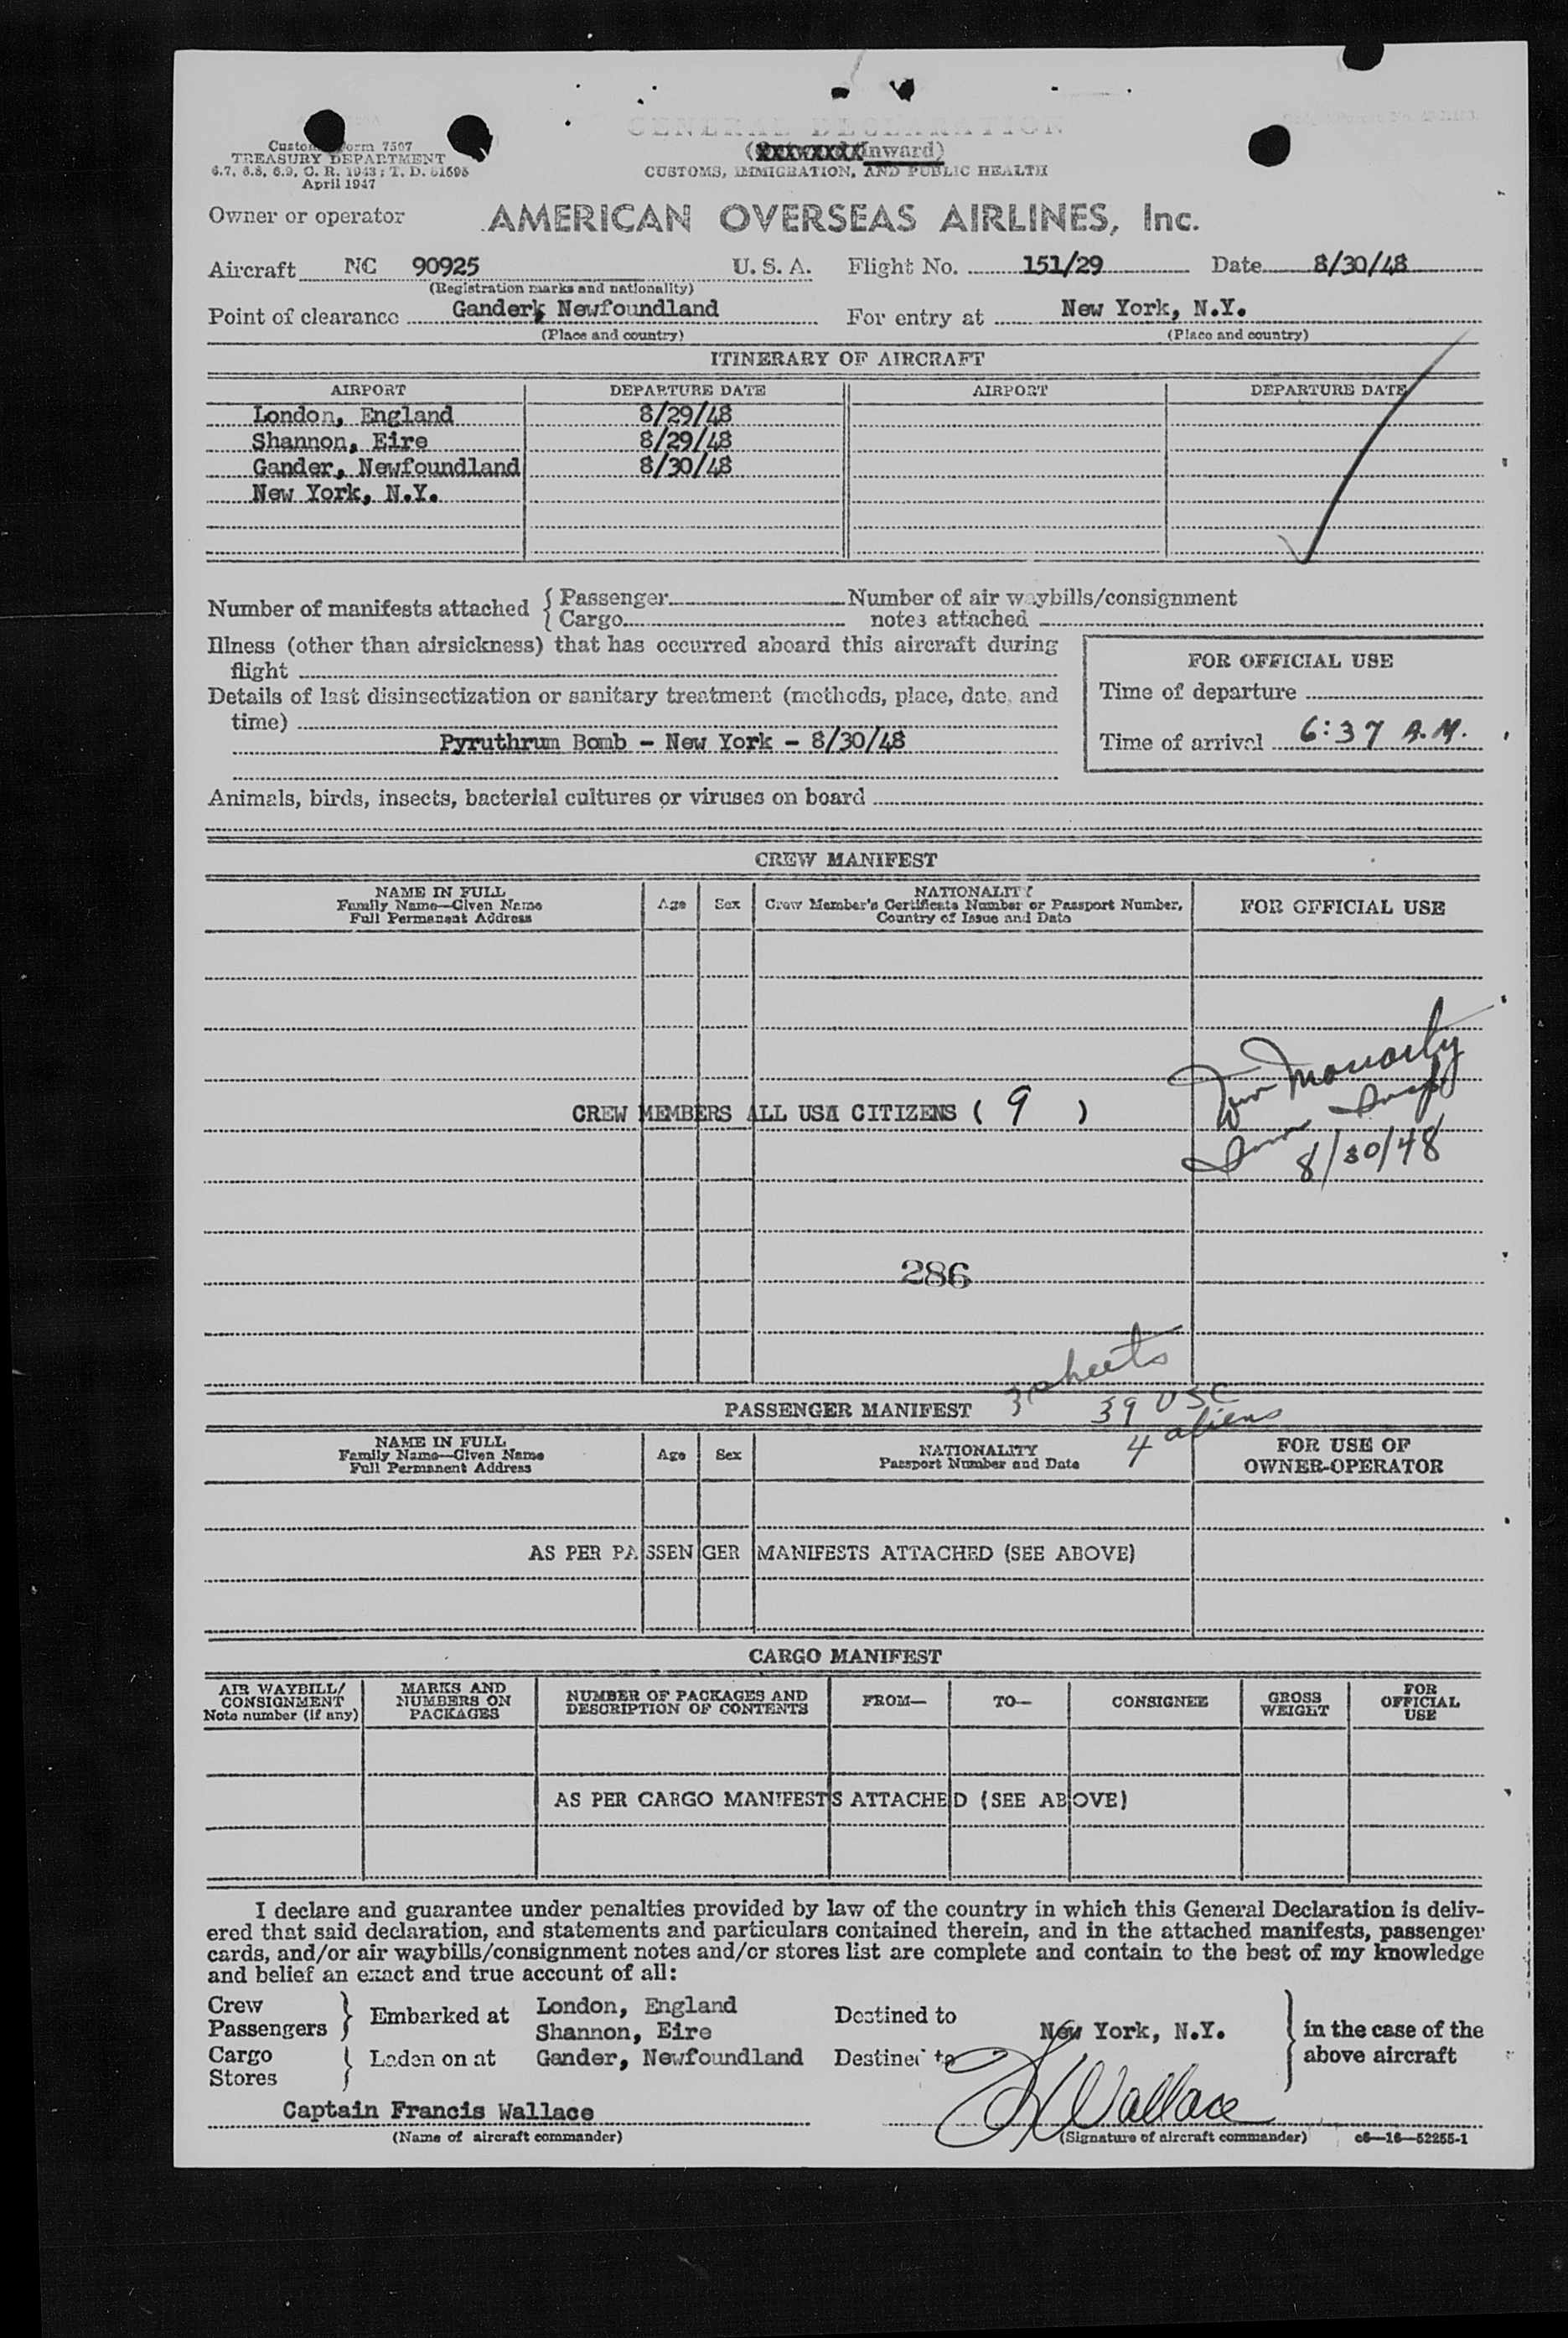 GENERAL DECLARATION
(XXXXXXXX Inward)
CUSTOMS, IMMIGRATION, AND PUBLIC HEALTH
Customs Form 7507
TREASURY DEPARTMENT
6.7, 6.8, 6.9, C. R. 1943; T. D. 51595
April 1947
Owner or operator AMERICAN OVERSEAS AIRLINES, Inc.
Aircraft NC 90925 U. S. A. Flight No. 151/29 Date 8/30/48
(Registration marks and nationality)
Point of clearance Ganderk, Newfoundland For entry at New York, N.Y.
(Place and country) (Place and country)
ITINERARY OF AIRCRAFT
AIRPORT DEPARTURE DATE AIRPORT DEPARTURE DATE
London, England 8/29/48
Shannon, Eire 8/29/48
Gander, Newfoundland 8/30/48
New York, N.Y.
Number of manifests attached { Passenger Number of air waybills/consignment
{ Cargo notes attached
Illness (other than airsickness) that has occurred aboard this aircraft during
flight
Details of last disinsectization or sanitary treatment (methods, place, date, and
time)
Pyruthrum Bomb - New York - 8/30/48
FOR OFFICIAL USE
Time of departure
Time of arrival 6:37 A.M.
Animals, birds, insects, bacterial cultures or viruses on board
CREW MANIFEST
NAME IN FULL
Family Name—Given Name
Full Permanent Address
Age
Sex
NATIONALITY
Crew Member's Certificate Number or Passport Number,
Country of Issue and Date
FOR OFFICIAL USE
CREW MEMBERS ALL USA CITIZENS ( 9 )
Moriarty
Imm Insp
8/30/48
286
3 sheets
PASSENGER MANIFEST
39 USC
4 aliens
NAME IN FULL
Family Name—Given Name
Full Permanent Address
Age
Sex
NATIONALITY
Passport Number and Date
FOR USE OF
OWNER-OPERATOR
AS PER PASSENGER MANIFESTS ATTACHED (SEE ABOVE)
CARGO MANIFEST
AIR WAYBILL/
CONSIGNMENT
Note number (if any)
MARKS AND
NUMBERS ON
PACKAGES
NUMBER OF PACKAGES AND
DESCRIPTION OF CONTENTS
FROM—
TO—
CONSIGNEE
GROSS
WEIGHT
FOR
OFFICIAL
USE
AS PER CARGO MANIFESTS ATTACHED (SEE ABOVE)
I declare and guarantee under penalties provided by law of the country in which this General Declaration is deliv-
ered that said declaration, and statements and particulars contained therein, and in the attached manifests, passenger
cards, and/or air waybills/consignment notes and/or stores list are complete and contain to the best of my knowledge
and belief an exact and true account of all:
Crew
Passengers } Embarked at London, England
Shannon, Eire
Destined to New York, N.Y.
Cargo
Stores } Laden on at Gander, Newfoundland Destined to
} in the case of the
above aircraft
Captain Francis Wallace
(Name of aircraft commander)
Wallace
(Signature of aircraft commander) c6—16—52255-1